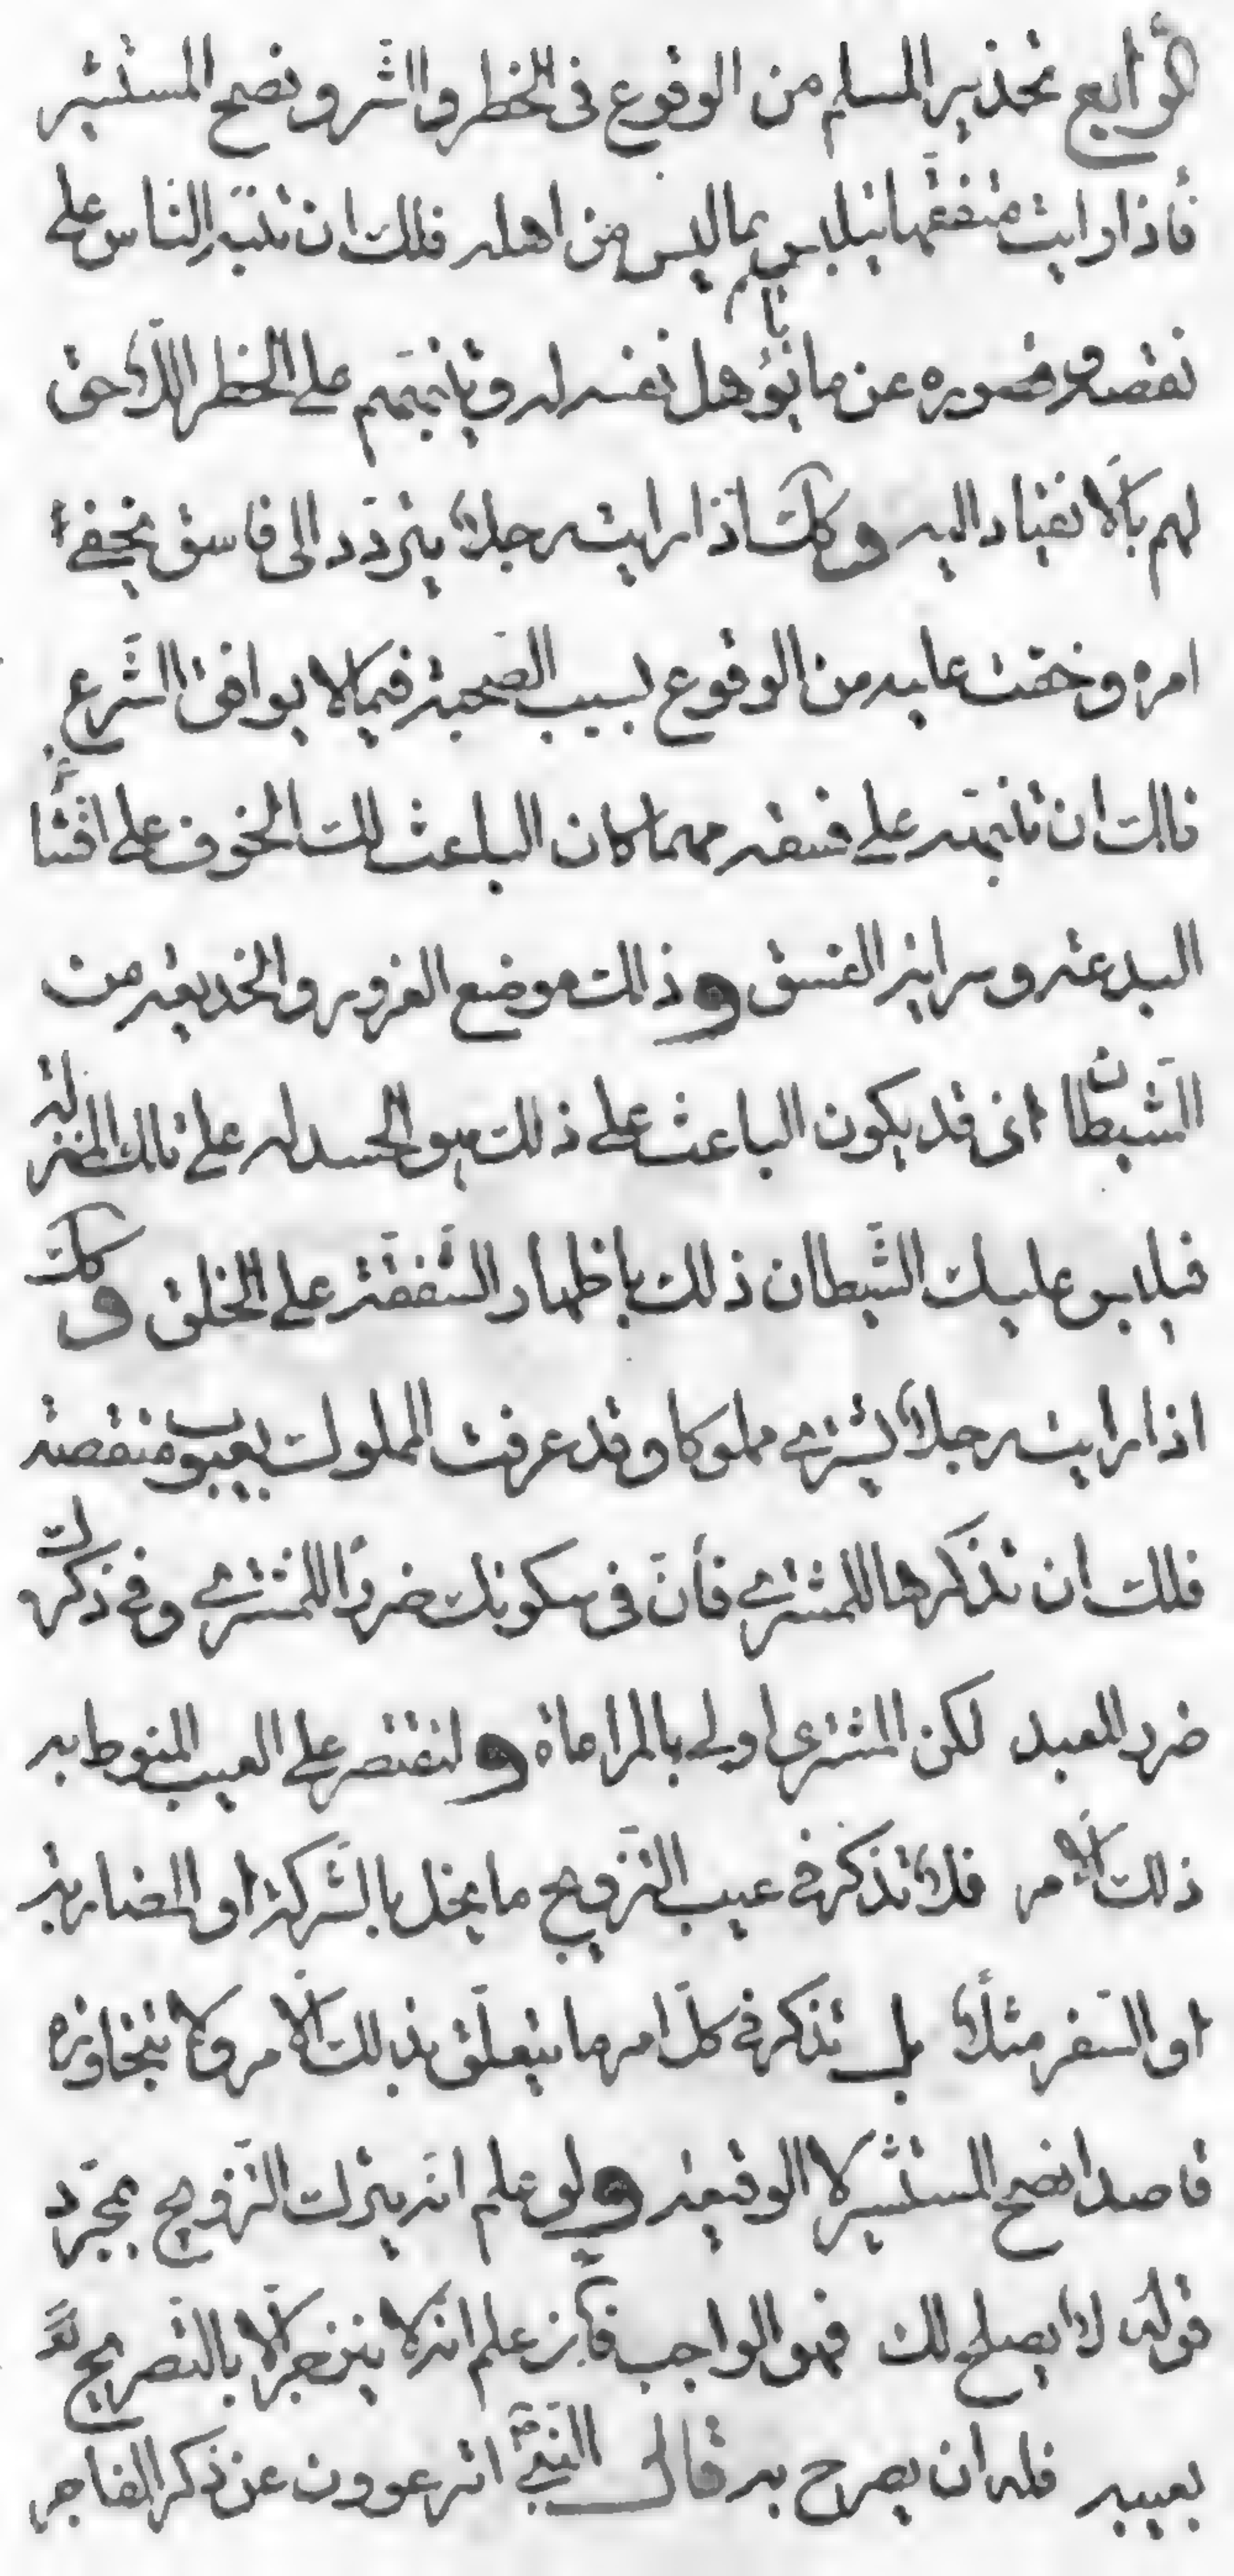 الرابع تحذير المسلم من الوقوع في الخطر والشر ونصح المستشير
فأذا رايت متفقها يتلبس بما ليس من اهله فلك ان تنبه الناس على
نقصه وقصوره عن ما يؤهل نفسه له وتنبههم على الخطر اللاحق
لهم بالانقياد اليه وكك اذا رايت رجلا يتردد الى فاسق يخفى
امره وخفت عليه من الوقوع بسبب الصحبة فيما لا يوافق الشرع
فلك ان تنبهه على فسقه مهما كان الباعث لك الخوف على افشاء
البدعة وسراية الفسق وذلك موضع الغرور والخديعة من
الشيطان اذ قد يكون الباعث على ذلك هو الحسد له على تلك المنزلة
فيلبس عليك الشيطان ذلك بإظهار الشفقة على الخلق وكك
اذا رايت رجلا يشتري مملوكا وقد عرفت المملوك بعيوب منقصة
فلك ان تذكرها للمشتري فأن في سكوتك ضررا للمشتري وفي ذكرك
ضررا للعبد لكن المشتري اولى بالمراعاة ولتقتصر على العيب المنوط به
ذلك الامر فلا تذكر في عيب التزويج ما يخل بالشركة او المضاربة
او السفر مثلا بل تذكر في كل امر ما يتعلق بذلك الامر ولا تتجاوزه
قاصدا نصح المستشير لا الوقيعة ولو علم انه يترك التزويج بمجرد
قوله لا يصلح لك فهو الواجب فأن علم انه لا ينزجر الا بالتصريح
بعيبه فله ان يصرح به قال النبي اترعوون عن ذكر الفاجر